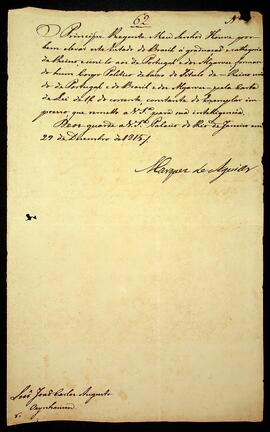 62
O Principe Regente Meu Senhor Houve por
bem elevar este Estado do Brasil á graduação e cathegoria
de Reino e uni-lo aos de Portugal e dos Algarves forman
do hum Corpo Politico debaixo do Titulo de = Reino uni
do de Portugal e do Brasil e dos Algarves = pela Carta
de Lei de 16 do corrente, constante do Exemplar im
presso que remetto a V.S.ª para sua intelligencia.
Deos guarde a V.S.ª Palacio do Rio de Janeiro em
29 de Dezembro de 1815 /
Marquez de Aguiar
João Carlos Augusto
Oeynhausen